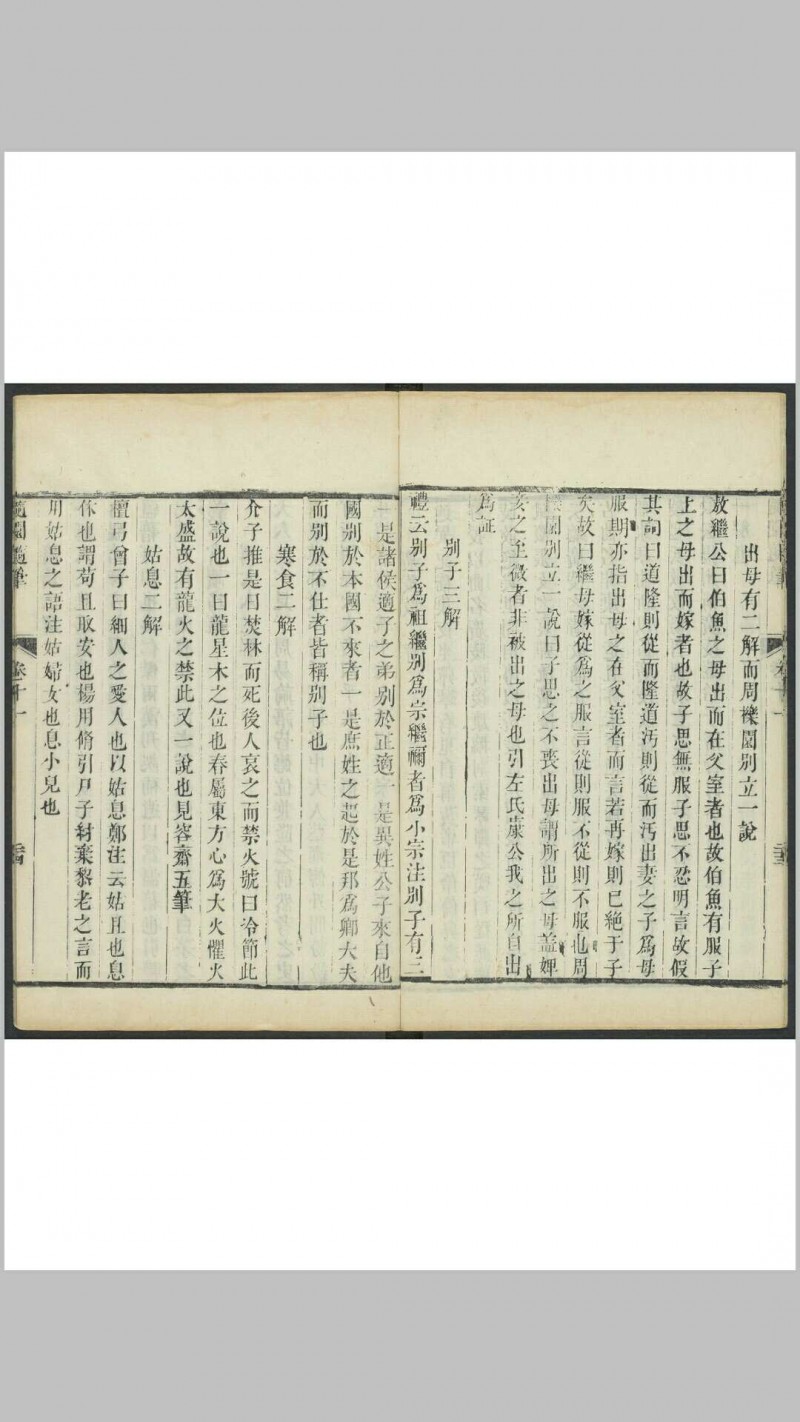 出母有二解而周櫟園別立一說
敖繼公曰伯魚之母出而在父室者也故伯魚有服子
上之母出而嫁者也故子思無服子思不忍明言故假
其詞曰道隆則從而隆道汚則從而汚出妻之子爲母
服期亦指出母之在父室者而言若再嫁則已絶于子
矣故曰繼母嫁從爲之服言從則服不從則不服也周
園別立一說曰子思之不喪出母謂所出之母蓋婢
妾之至微者非被出之母也引左氏康公我之所自出
爲証
別子三解
禮云別子爲祖繼別爲宗繼禰者爲小宗注別子有三
一是諸侯適子之弟別於正適一是異姓公子來自他
國別於本國不來者一是庶姓之起於是邦爲卿大夫
而別於不仕者皆稱別子也
寒食二解
介子推是日焚林而死後人哀之而禁火號曰冷節此
一說也一曰龍星木之位也春屬東方心爲大火懼火
太盛故有龍火之禁此又一說也見容齋五筆
姑息二解
檀弓曾子曰細人之愛人也以姑息鄭注云姑且也息
休也謂苟且取安也楊用脩引尸子紂棄黎老之言而
用姑息之語注姑婦女也息小兒也
隨園隨筆
卷十一